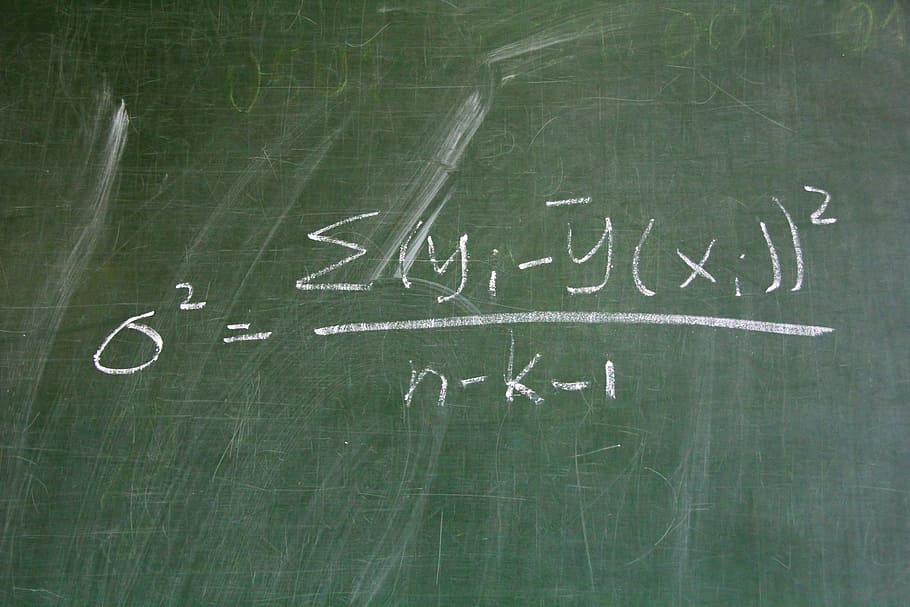 σ² = Σ(yᵢ - ȳ(xᵢ))² / n-k-1